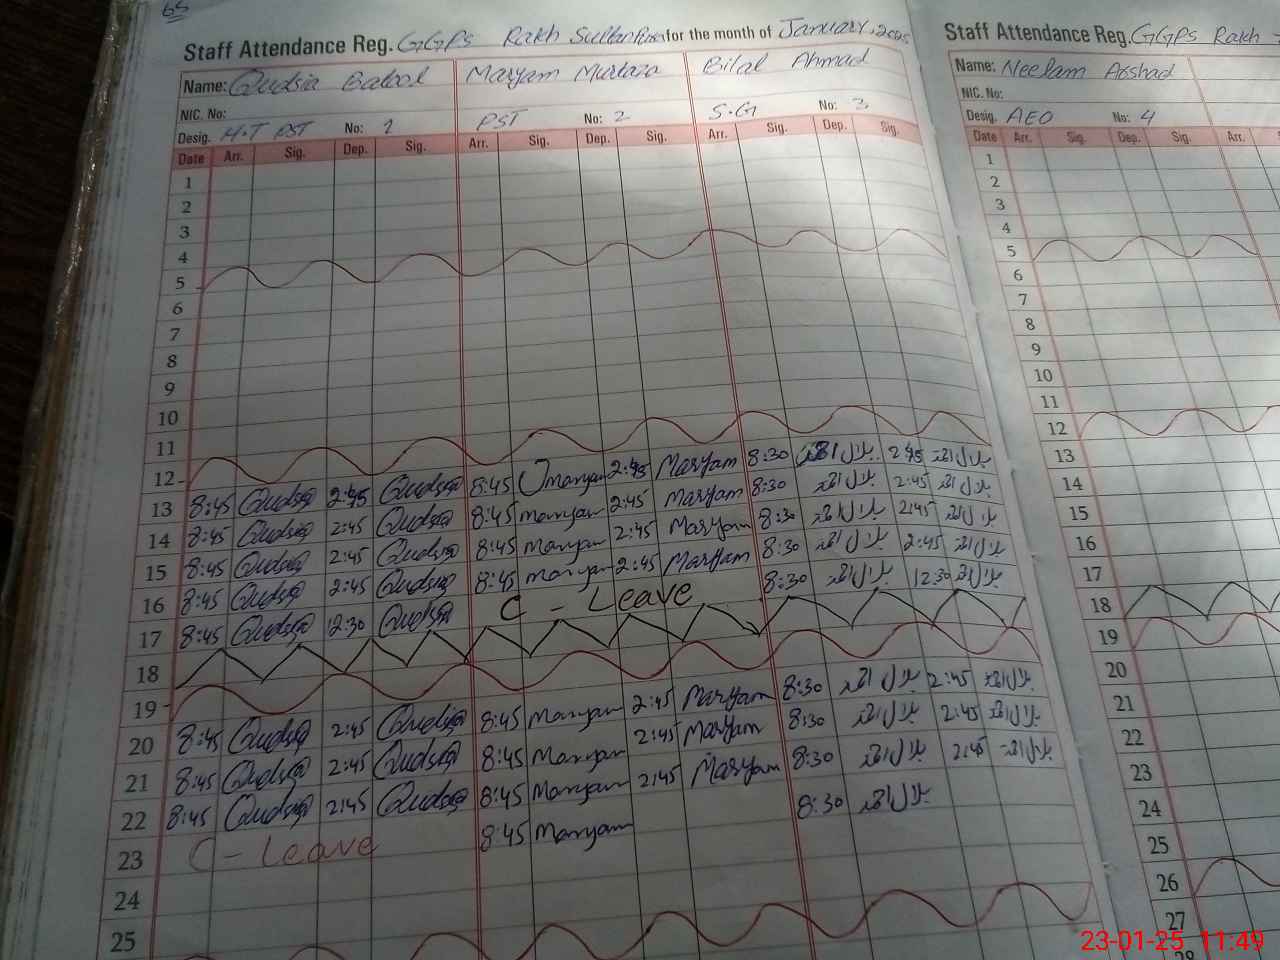 65
Staff Attendance Reg. GGPS Rakh Sultan Pur for the month of January, 2025
Name: Qudsia Batool Maryam Murtaza Bilal Ahmad
NIC. No:
Desig. H.T PST No: 1 PST No: 2 S.G No: 3
Date Arr. Sig. Dep. Sig. Arr. Sig. Dep. Sig. Arr. Sig. Dep. Sig.
1
2
3
4
5
6
7
8
9
10
11
12
13 8:45 Qudsia 2:45 Qudsia 8:45 Maryam 2:45 Maryam 8:30 بلال احمد 2:45 بلال احمد
14 8:45 Qudsia 2:45 Qudsia 8:45 Maryam 2:45 Maryam 8:30 بلال احمد 2:45 بلال احمد
15 8:45 Qudsia 2:45 Qudsia 8:45 Maryam 2:45 Maryam 8:30 بلال احمد 2:45 بلال احمد
16 8:45 Qudsia 2:45 Qudsia 8:45 Maryam 2:45 Maryam 8:30 بلال احمد 2:45 بلال احمد
17 8:45 Qudsia 12:30 Qudsia C - Leave 8:30 بلال احمد 12:30 بلال احمد
18
19
20 8:45 Qudsia 2:45 Qudsia 8:45 Maryam 2:45 Maryam 8:30 بلال احمد 2:45 بلال احمد
21 8:45 Qudsia 2:45 Qudsia 8:45 Maryam 2:45 Maryam 8:30 بلال احمد 2:45 بلال احمد
22 8:45 Qudsia 2:45 Qudsia 8:45 Maryam 2:45 Maryam 8:30 بلال احمد 2:45 بلال احمد
23 C - Leave 8:45 Maryam 8:30 بلال احمد
24
25
Staff Attendance Reg. GGPS Rakh
Name: Neelam Arshad
NIC. No:
Desig. AEO No: 4
Date Arr. Sig. Dep. Sig. Arr.
1
2
3
4
5
6
7
8
9
10
11
12
13
14
15
16
17
18
19
20
21
22
23
24
25
26
27
28
23-01-25 11:49